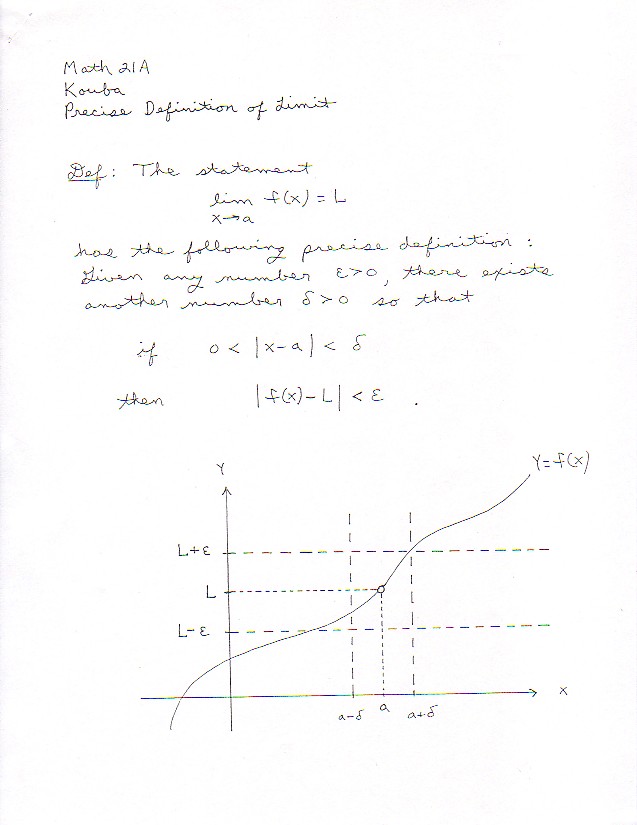 Math 21A
Kouba
Precise Definition of Limit
Def: The statement
lim f(x) = L
x→a
has the following precise definition :
Given any number ε>0, there exists
another number δ>0 so that
if 0 < |x-a| < δ
then |f(x)-L| < ε .
Y
Y=f(x)
L+ε
L
L-ε
X
a-δ a a+δ